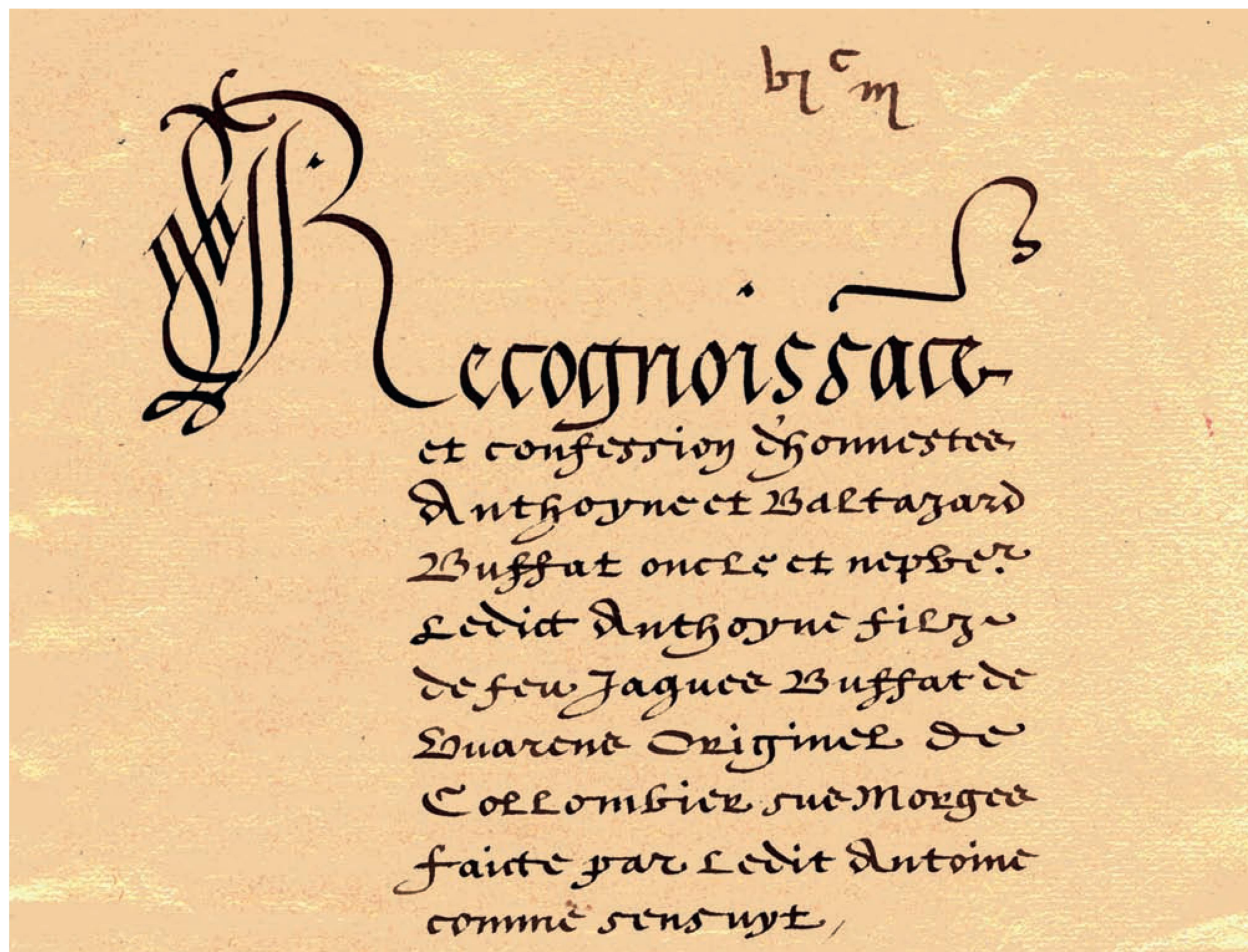 Recognoissace
et confession d'honnestes
Anthoyne et Baltazard
Buffat oncle et nepver
Ledict Anthoyne filz
de feu Jaques Buffat de
Vuarens Originel de
Collombier sus Morges
faicte par Ledit Antoine
comme sensuyt,